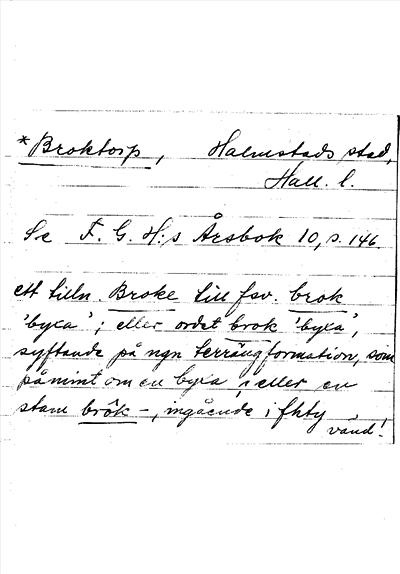 *Broktorp, Halmstads stad,
Hall. l.
Se F. G. H:s Årsbok 10, s. 146.
ett tilln. Broke till fsv. brok
'byxa'; eller ordet brok 'byxa',
syftande på ngn terrängformation, som
påmint om en byxa; eller en
stam brōk-, ingående i fhty
vänd!